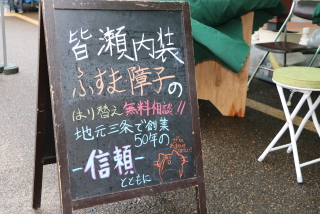 皆瀬内装
ふすま障子の
はり替え無料相談!!
地元三条で創業
50年の
-信頼-
とともに